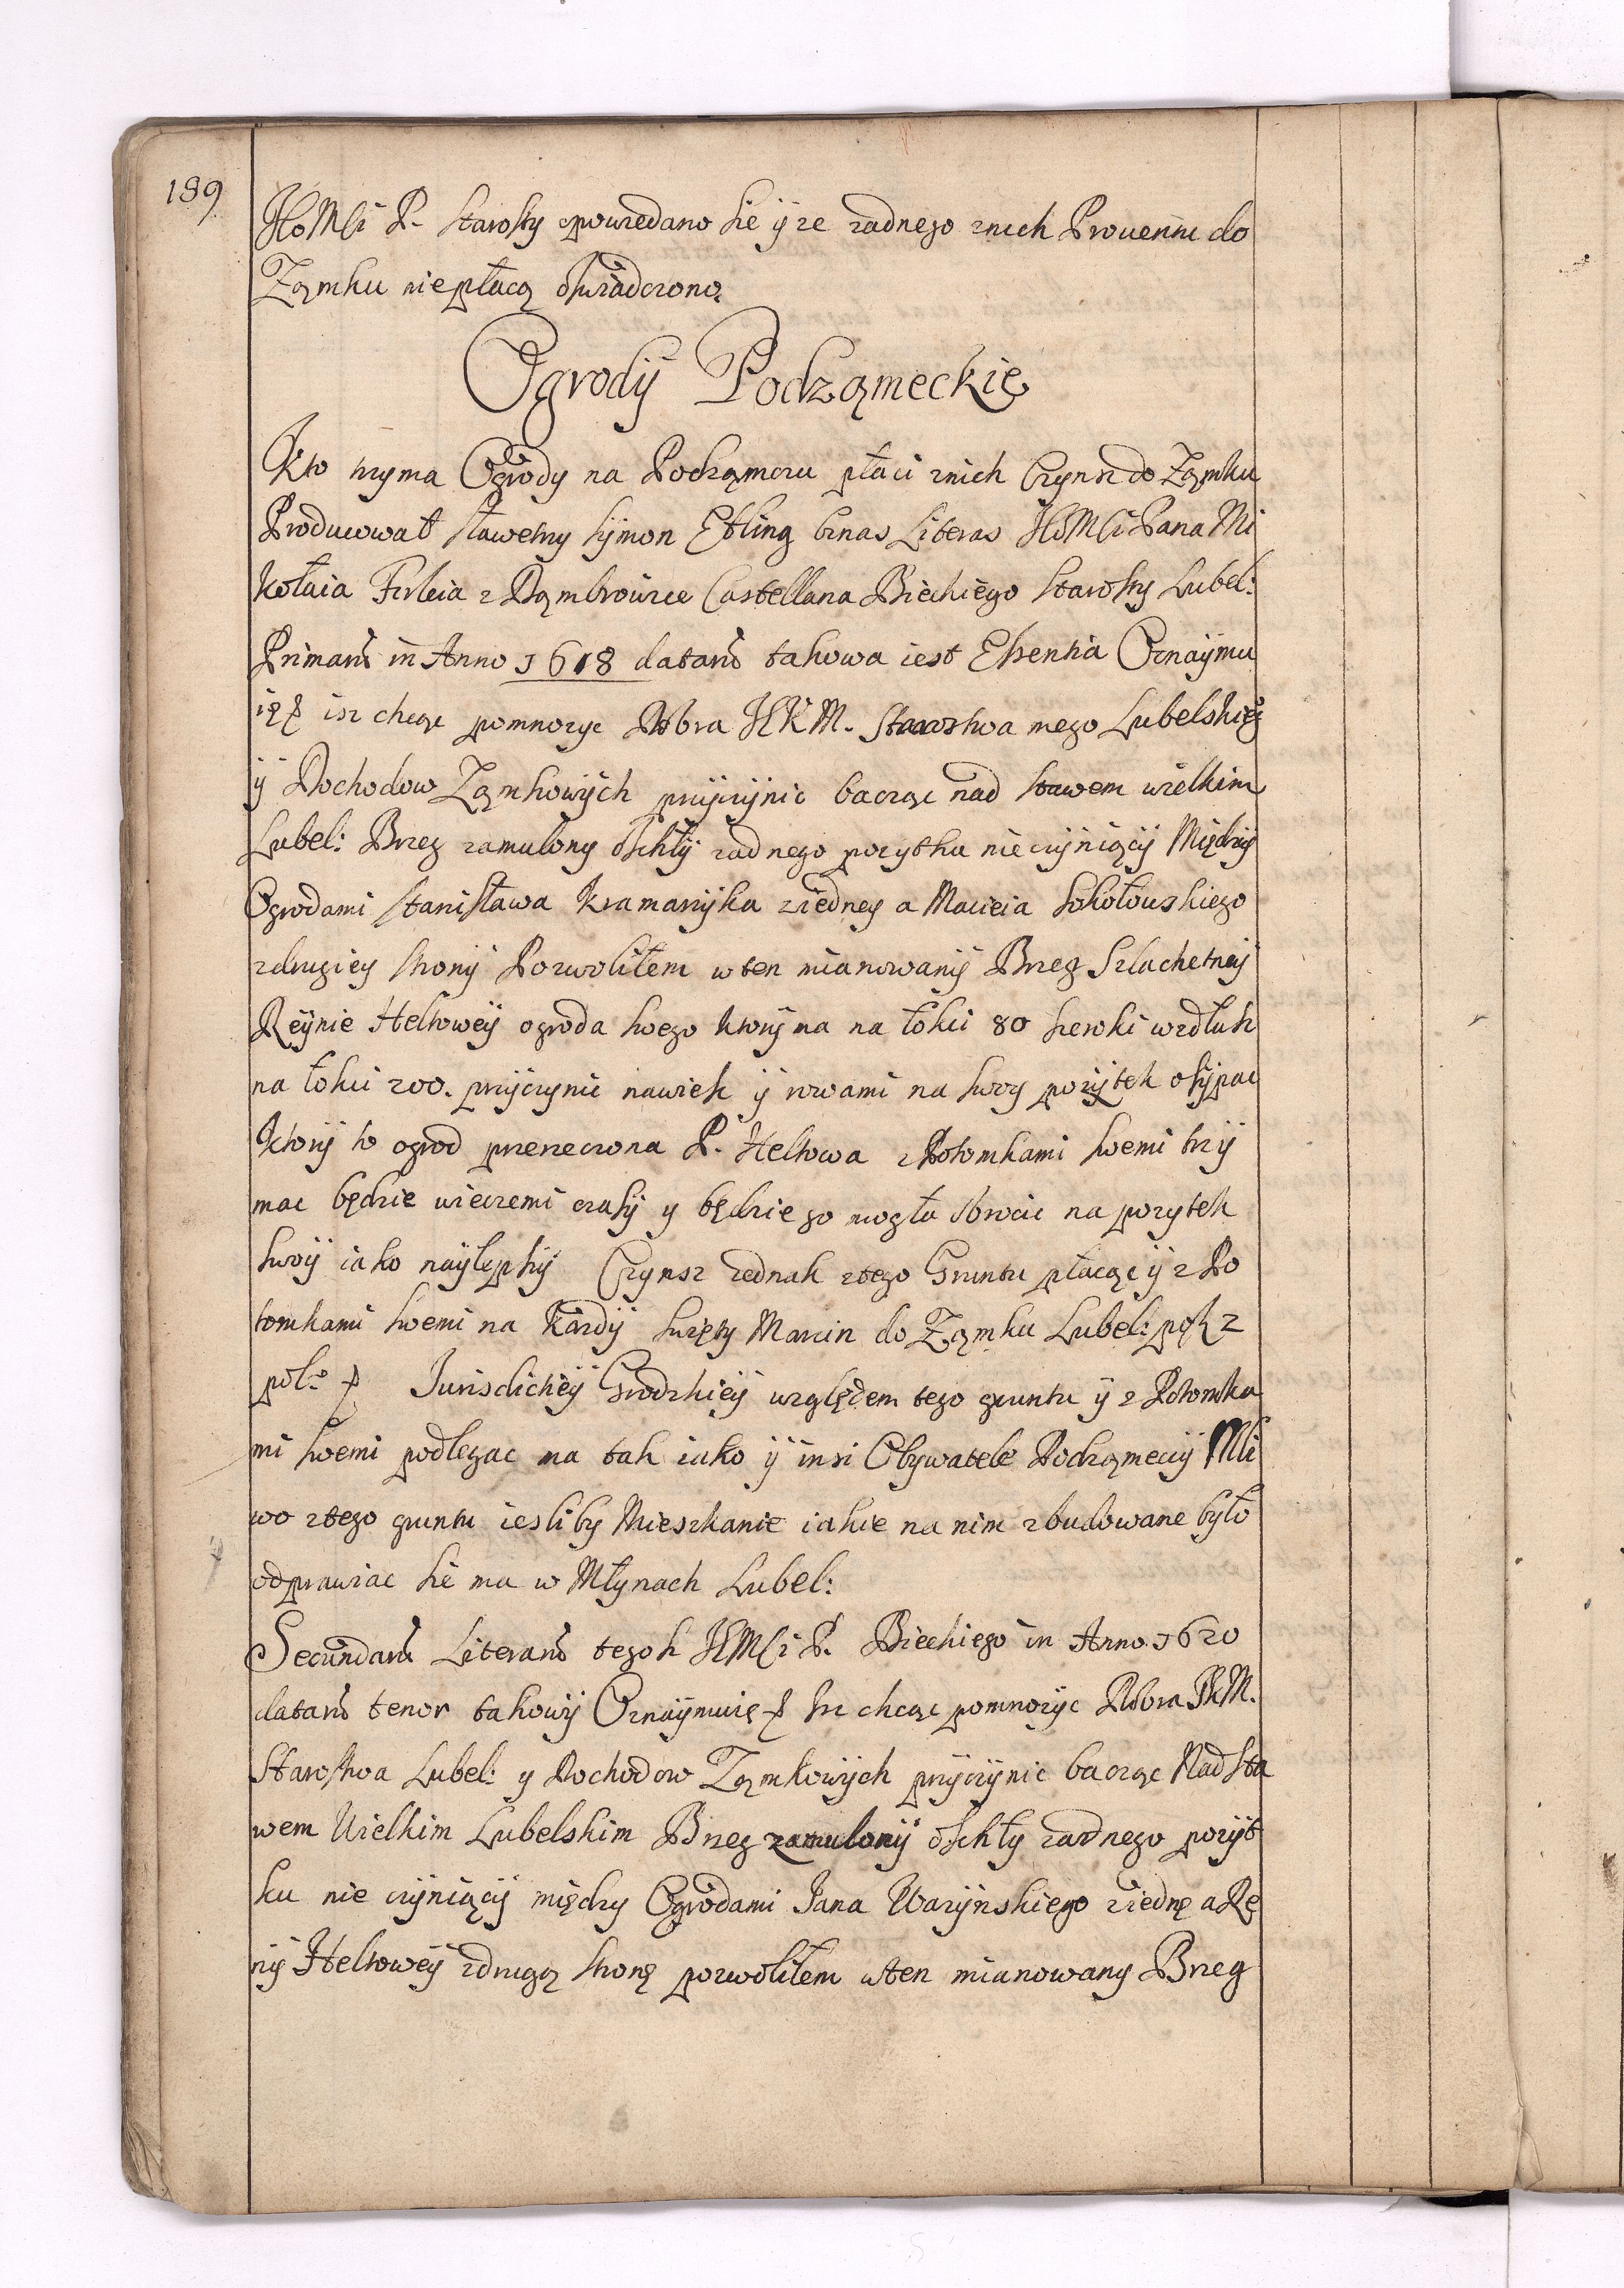 189
JEoMści P. Starosty opowiedano sie ÿ ze zadnego znich Prouentu do
Ząmku nie płacą oświadczono.
Ogrodÿ Podząmeckie
Kto trzyma Ogrody na Podząmczu płaci znich Czynsz do Ząmku
Producował sławetny Sÿmon Etling binas Literas JEoMści Pana Mi
kołaia Firleia z Dąmbrowice Castellana Bieckiego Starosty Lubel:
Primam in Anno 1618 datam takowa iest Essentia Oznaÿmu
ię isz chcąc pomnozyc Dobra JKM. Starostwa mego Lubelskieg
ÿ Dochodow Ząmkowÿch przÿczÿnic bacząc nad Stawem wielkim
Lubel: Brzeg zamulony oschłÿ zadnego pozytku nie czÿniącÿ Międzÿ
Ogrodami Stanisława Kramarzÿka ziedney a Macieia Sokołowskiego
zdrugiey stronÿ Pozwoliłem w ten mianowanÿ Brzeg Szlachetneÿ
Reÿnie Heltoweÿ ogroda swego ktorÿ ma na łokci 80 szeroki wzdłusz
na łokci 200. przÿczynic nawiesc ÿ rowami na swoy pozÿtek osÿpac
Ktorÿ to ogrod przerzeczona P. Heltowa z Potomkami swemi trzÿ
mac będzie wiecznemi czasÿ y będzie go mogła obrocic na pozytek
swoÿ iako naÿlepszÿ Czynsz iednak ztego Gruntu płacąc ÿ z Po
tomkami swemi na Kazdÿ Swięty Marcin do Ząmku Lubel: pęsz
pol: Jurisdictieÿ Grodzkieÿ względem tego gruntu ÿ z Potomka
mi swemi podlegac ma tak iako ÿ insi Obywatele Podząmeccÿ Mli
wo ztego gruntu iesliby Mieszkanie iakie na nim zbudowane było
odprawiac sie ma w Młynach Lubel:
Secundam Literam tegosz JEMści P. Bieckiego in Anno 1620
datam tenor takowÿ Oznaÿmuię Isz chcąc pomnozÿc Dobra JKM.
Starostwa Lubel: y Dochodow Ząmkowÿch przÿczÿnic bacząc Nad Sta
wem Wielkim Lubelskim Brzeg zamulonÿ oschły zadnego pozÿt
ku nie czÿniącÿ między Ogrodami Jana Warÿnskiego ziednę a Rę
nÿ Heltoweÿ zdrugą stronę pozwoliłem w ten mianowany Brzeg